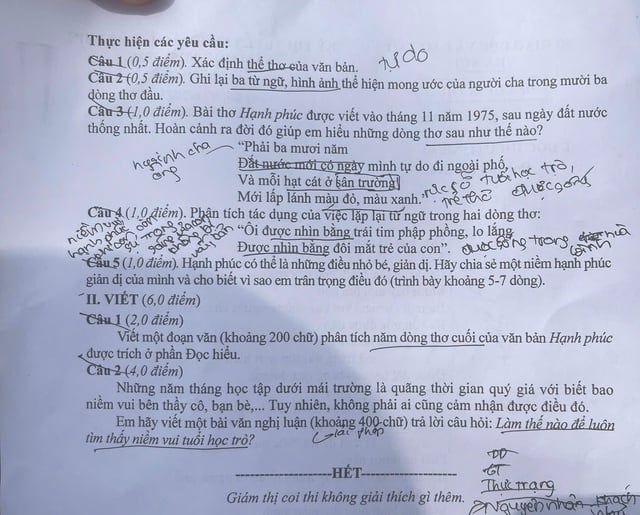 Thực hiện các yêu cầu:
Câu 1 (0,5 điểm). Xác định thể thơ của văn bản. tự do
Câu 2 (0,5 điểm). Ghi lại ba từ ngữ, hình ảnh thể hiện mong ước của người cha trong mười ba
dòng thơ đầu.
Câu 3 (1,0 điểm). Bài thơ Hạnh phúc được viết vào tháng 11 năm 1975, sau ngày đất nước
thống nhất. Hoàn cảnh ra đời đó giúp em hiểu những dòng thơ sau như thế nào?
“Phải ba mươi năm
Đất nước mới có ngày mình tự do đi ngoài phố,
Và mỗi hạt cát ở sân trường
Mới lấp lánh màu đỏ, màu xanh.
Câu 4 (1,0 điểm). Phân tích tác dụng của việc lặp lại từ ngữ trong hai dòng thơ:
“Ôi được nhìn bằng trái tim phập phồng, lo lắng
Được nhìn bằng đôi mắt trẻ của con”.
Câu 5 (1,0 điểm). Hạnh phúc có thể là những điều nhỏ bé, giản dị. Hãy chia sẻ một niềm hạnh phúc
giản dị của mình và cho biết vì sao em trân trọng điều đó (trình bày khoảng 5-7 dòng).
II. VIẾT (6,0 điểm)
Câu 1 (2,0 điểm)
Viết một đoạn văn (khoảng 200 chữ) phân tích năm dòng thơ cuối của văn bản Hạnh phúc
được trích ở phần Đọc hiểu.
Câu 2 (4,0 điểm)
Những năm tháng học tập dưới mái trường là quãng thời gian quý giá với biết bao
niềm vui bên thầy cô, bạn bè,... Tuy nhiên, không phải ai cũng cảm nhận được điều đó.
Em hãy viết một bài văn nghị luận (khoảng 400 chữ) trả lời câu hỏi: Làm thế nào để luôn
tìm thấy niềm vui tuổi học trò?
Giải pháp
HẾT
Giám thị coi thi không giải thích gì thêm.
DD
GT
Thực trạng
Nguyên nhân khách